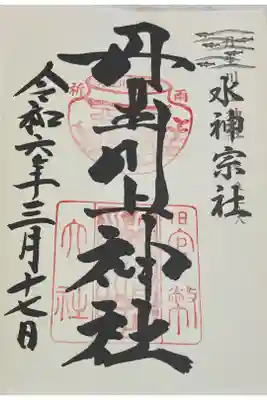 水神宗社
丹生川上神社
令和六年三月十七日
旧官幣
大社